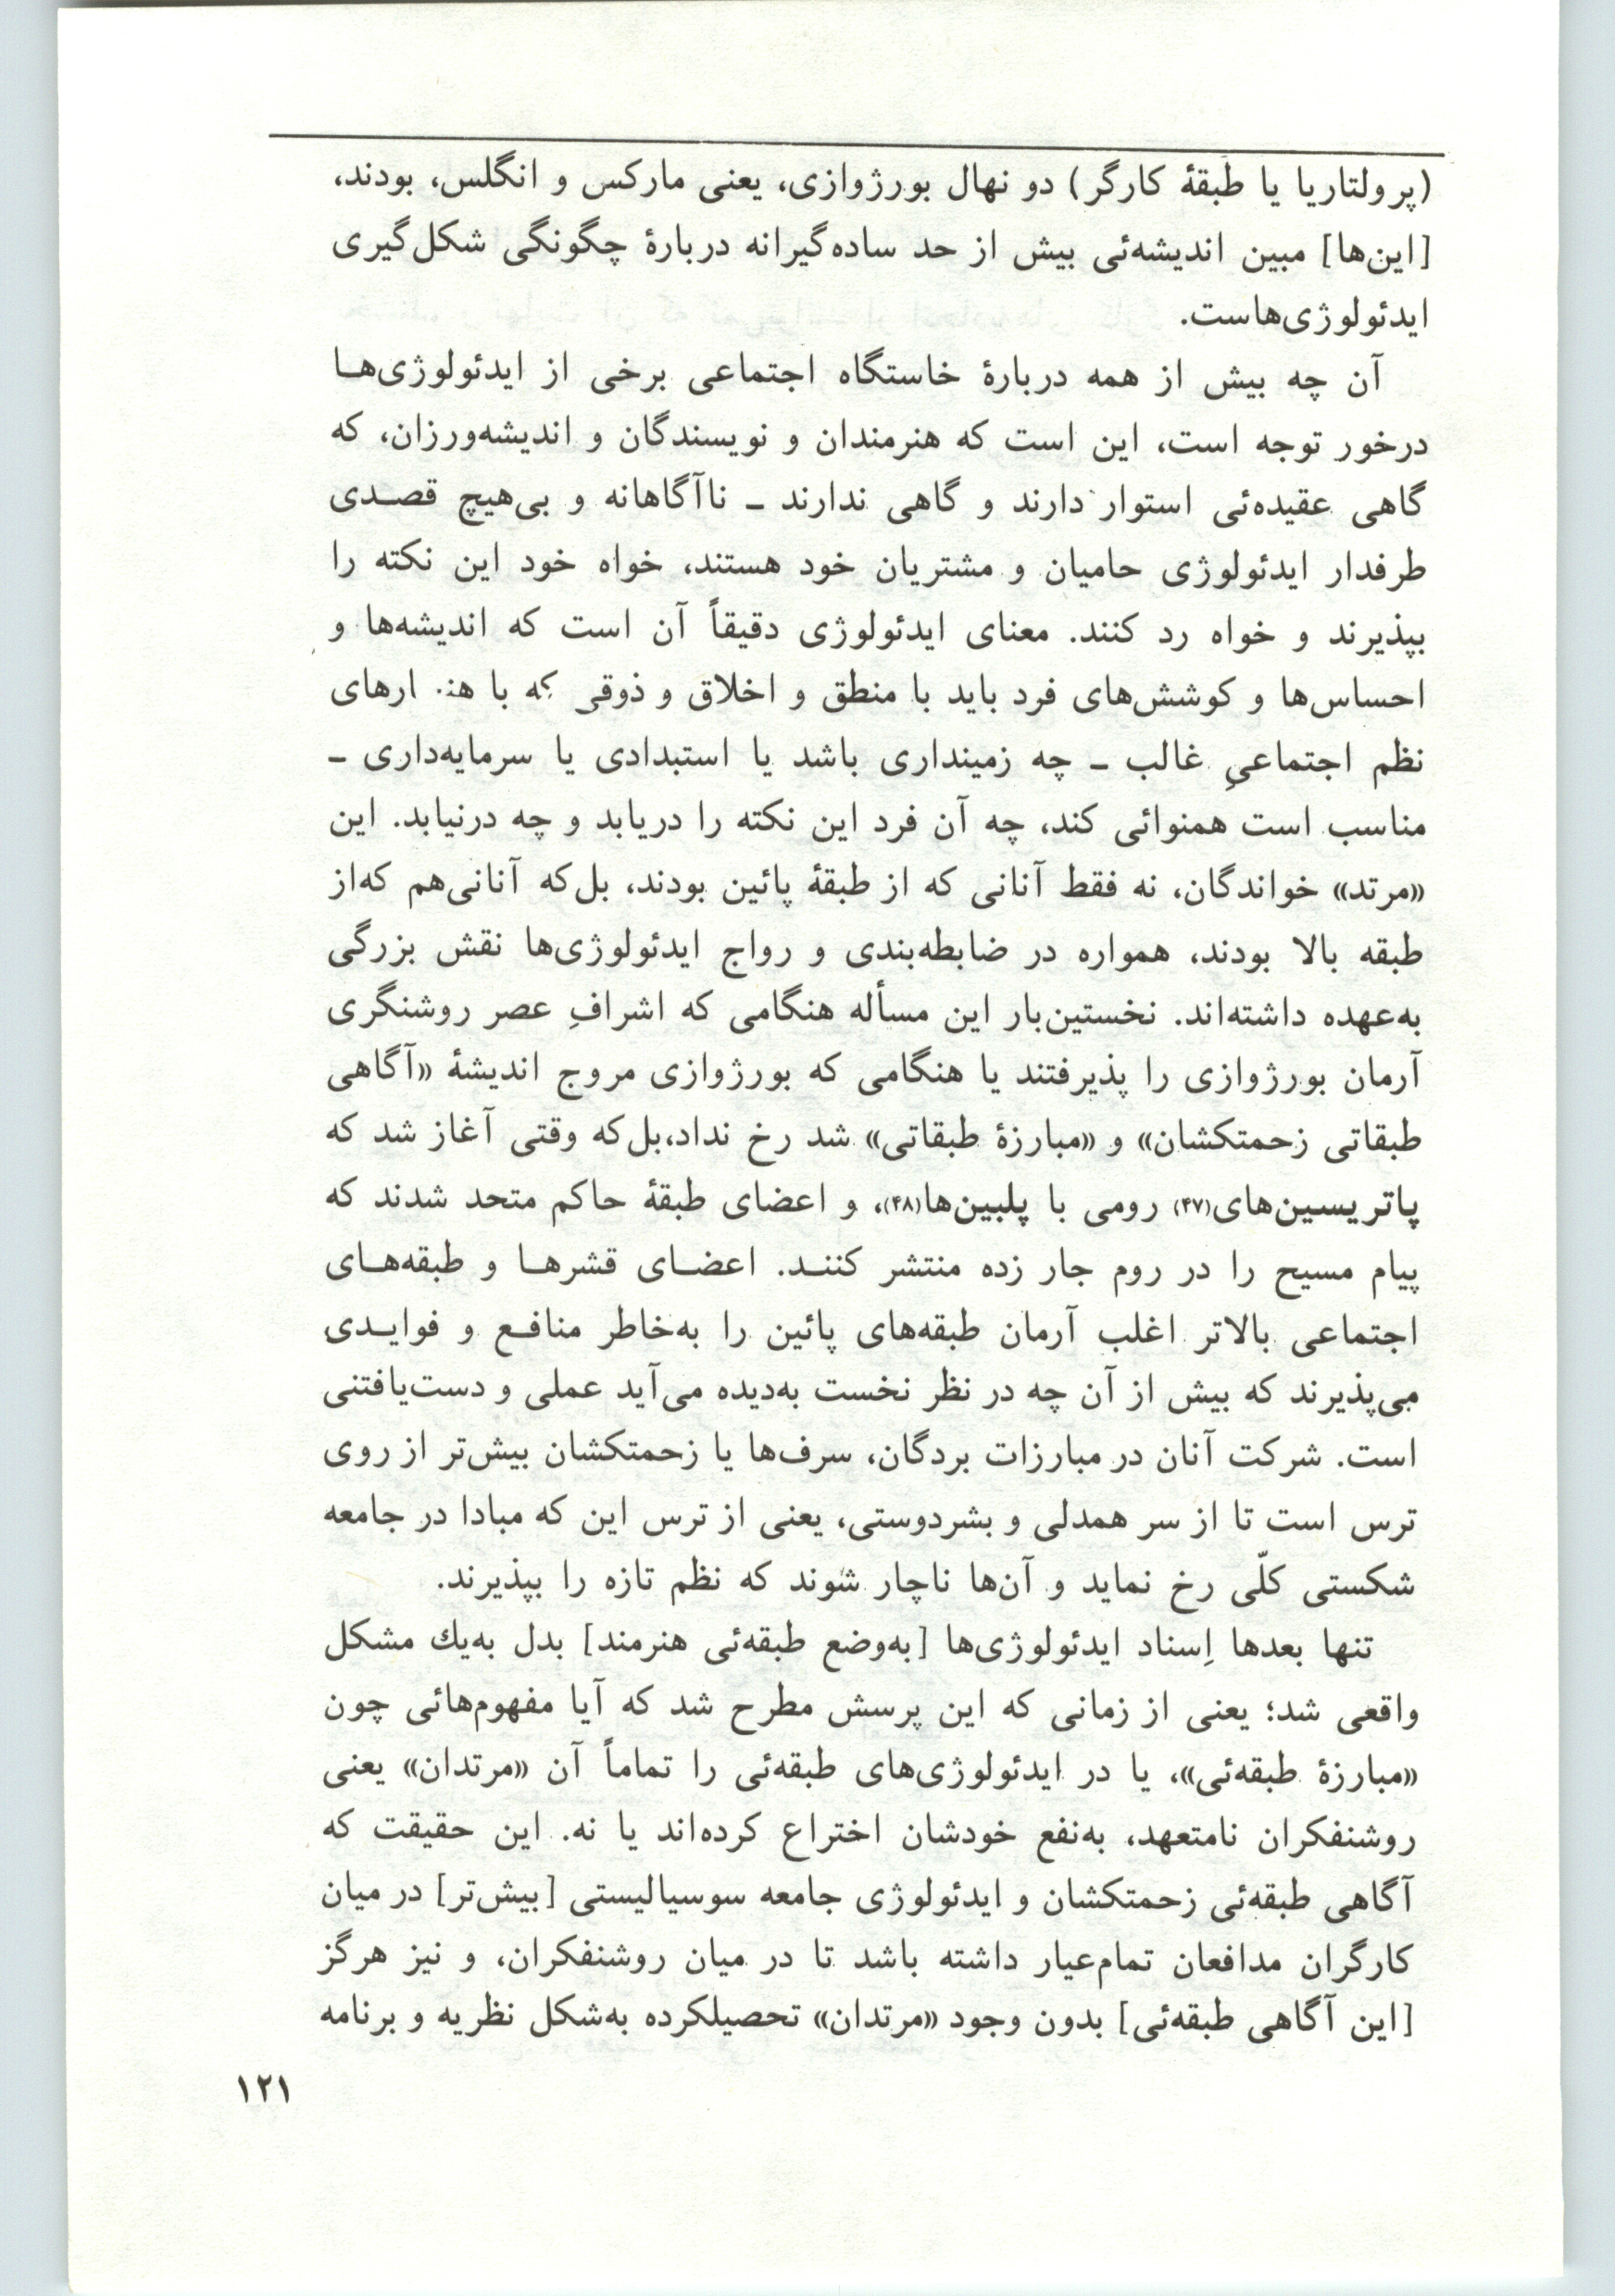 (پرولتاریا یا طبقهٔ کارگر) دو نهال بورژوازی، یعنی مارکس و انگلس، بودند،
[این‌ها] مبین اندیشه‌ئی بیش از حد ساده‌گیرانه دربارهٔ چگونگی شکل‌گیری
ایدئولوژی‌هاست.
آن چه بیش از همه دربارهٔ خاستگاه اجتماعی برخی از ایدئولوژی‌هـا
درخور توجه است، این است که هنرمندان و نویسندگان و اندیشه‌ورزان، که
گاهی عقیده‌ئی استوار دارند و گاهی ندارند ـ ناآگاهانه و بی‌هیچ قصـدی
طرفدار ایدئولوژی حامیان و مشتریان خود هستند، خواه خود این نکته را
بپذیرند و خواه رد کنند. معنای ایدئولوژی دقیقاً آن است که اندیشه‌ها و
احساس‌ها و کوشش‌های فرد باید با منطق و اخلاق و ذوقی که با
نظم اجتماعیِ غالب ـ چه زمینداری باشد یا استبدادی یا سرمایه‌داری ـ
مناسب است همنوائی کند، چه آن فرد این نکته را دریابد و چه درنیابد. این
«مرتد» خواندگان، نه فقط آنانی که از طبقهٔ پائین بودند، بل‌که آنانی‌هم که‌از
طبقه بالا بودند، همواره در ضابطه‌بندی و رواج ایدئولوژی‌ها نقش بزرگی
به‌عهده داشته‌اند. نخستین‌بار این مسأله هنگامی که اشرافِ عصر روشنگری
آرمان بورژوازی را پذیرفتند یا هنگامی که بورژوازی مروج اندیشهٔ «آگاهی
طبقاتی زحمتکشان» و «مبارزهٔ طبقاتی» شد رخ نداد،بل‌که وقتی آغاز شد که
پاتریسین‌های(۴۷) رومی با پلبین‌ها(۴۸)، و اعضای طبقهٔ حاکم متحد شدند که
پیام مسیح را در روم جار زده منتشر کننـد. اعضـای قشرهـا و طبقه‌هـای
اجتماعی بالاتر اغلب آرمان طبقه‌های پائین را به‌خاطر منافـع و فوایـدی
می‌پذیرند که بیش از آن چه در نظر نخست به‌دیده می‌آید عملی و دست‌یافتنی
است. شرکت آنان در مبارزات بردگان، سرف‌ها یا زحمتکشان بیش‌تر از روی
ترس است تا از سر همدلی و بشردوستی، یعنی از ترس این که مبادا در جامعه
شکستی کلّی رخ نماید و آن‌ها ناچار شوند که نظم تازه را بپذیرند.
تنها بعدها اِسناد ایدئولوژی‌ها [به‌وضع طبقه‌ئی هنرمند] بدل به‌یك مشکل
واقعی شد؛ یعنی از زمانی که این پرسش مطرح شد که آیا مفهوم‌هائی چون
«مبارزهٔ طبقه‌ئی»، یا در ایدئولوژی‌های طبقه‌ئی را تماماً آن «مرتدان» یعنی
روشنفکران نامتعهد، به‌نفع خودشان اختراع کرده‌اند یا نه. این حقیقت که
آگاهی طبقه‌ئی زحمتکشان و ایدئولوژی جامعه سوسیالیستی [بیش‌تر] در میان
کارگران مدافعان تمام‌عیار داشته باشد تا در میان روشنفکران، و نیز هرگز
[این آگاهی طبقه‌ئی] بدون وجود «مرتدان» تحصیلکرده به‌شکل نظریه و برنامه
۱۲۱